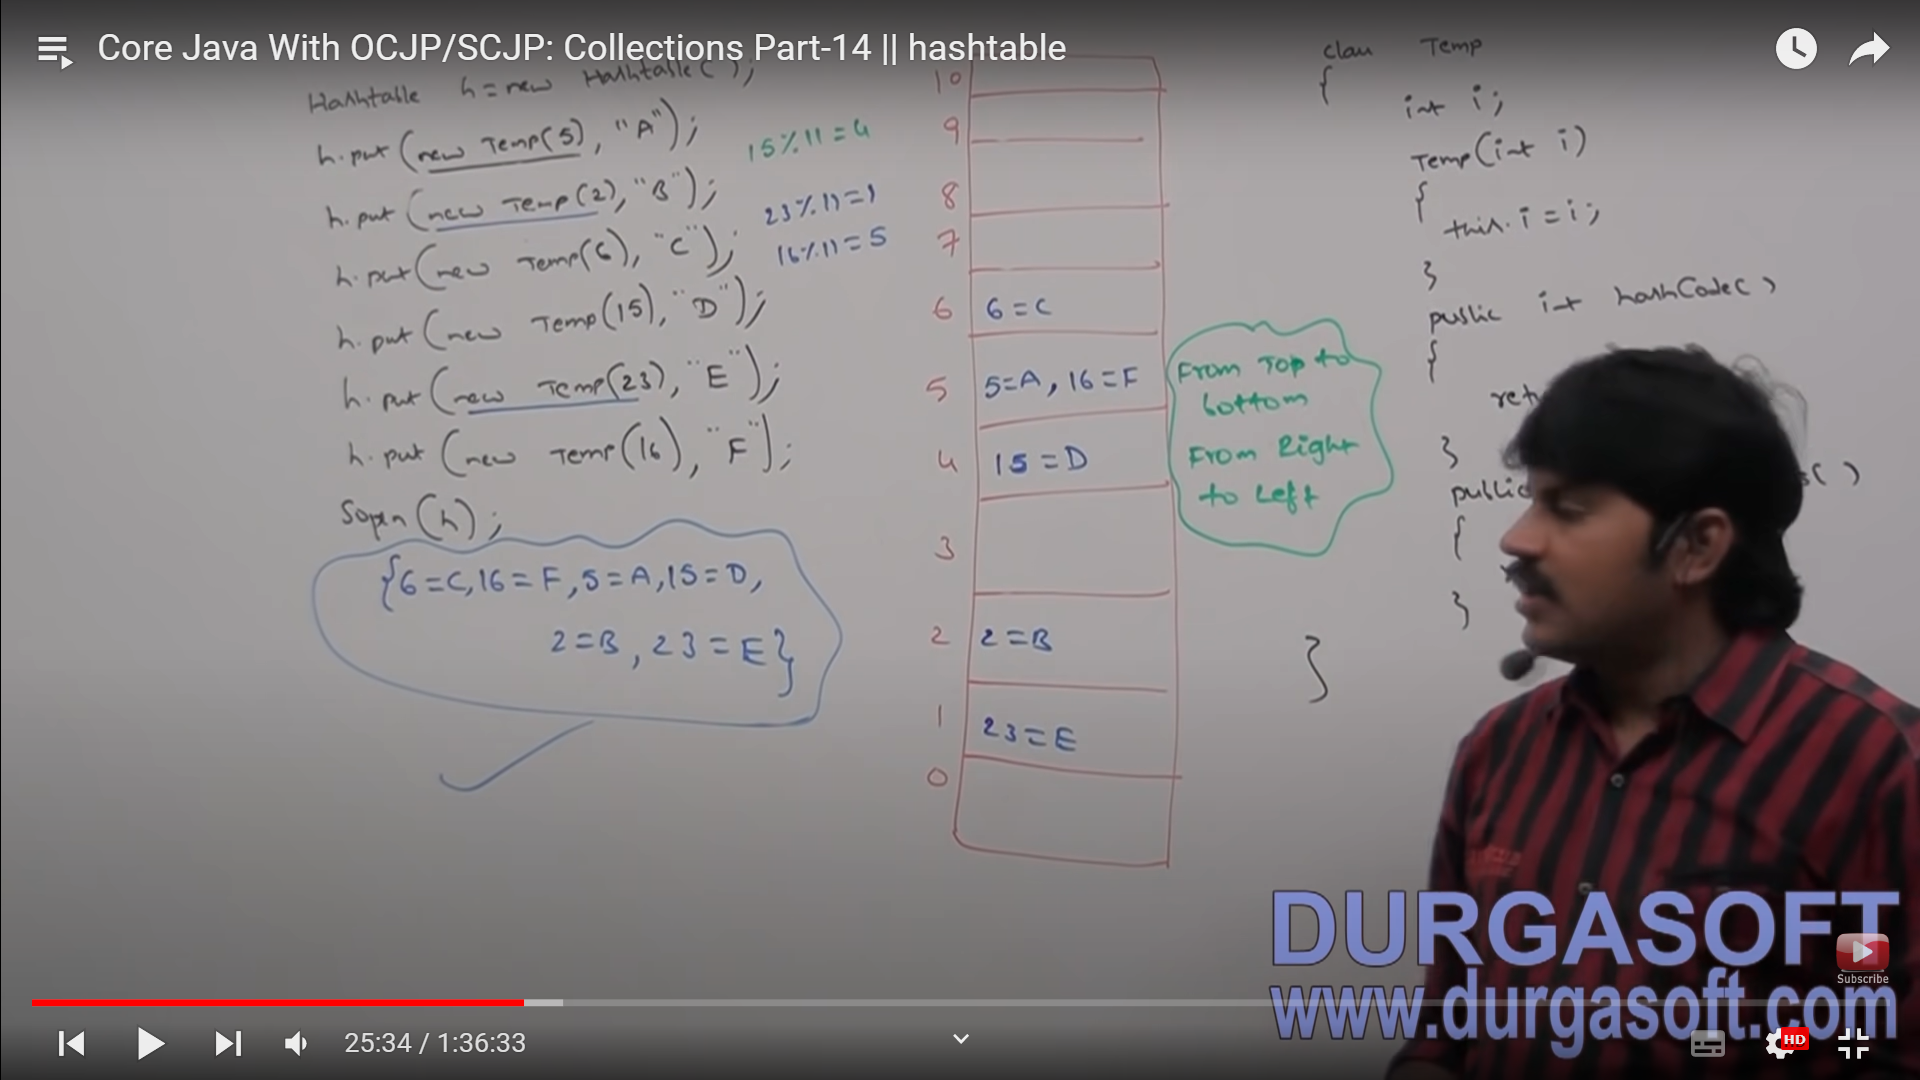 Core Java With OCJP/SCJP: Collections Part-14 || hashtable
Hashtable h = new Hashtable( );
h.put (new Temp(5), "A");
h.put (new Temp(2), "B");
h.put (new Temp(6), "C");
h.put (new Temp(15), "D");
h.put (new Temp(23), "E");
h.put (new Temp(16), "F");
Sopln (h);
{6=C, 16=F, 5=A, 15=D,
2=B, 23=E}
15%11=4
23%11=1
16%11=5
10
9
8
7
6 6=C
5 5=A, 16=F
4 15=D
3
2 2=B
1 23=E
0
From Top to
bottom
From Right
to Left
class Temp
{
int i;
Temp(int i)
{
this.i=i;
}
public int hashCode( )
{
}
public
( )
{
}
}
DURGASOFT
www.durgasoft.com
Subscribe
25:34 / 1:36:33
HD